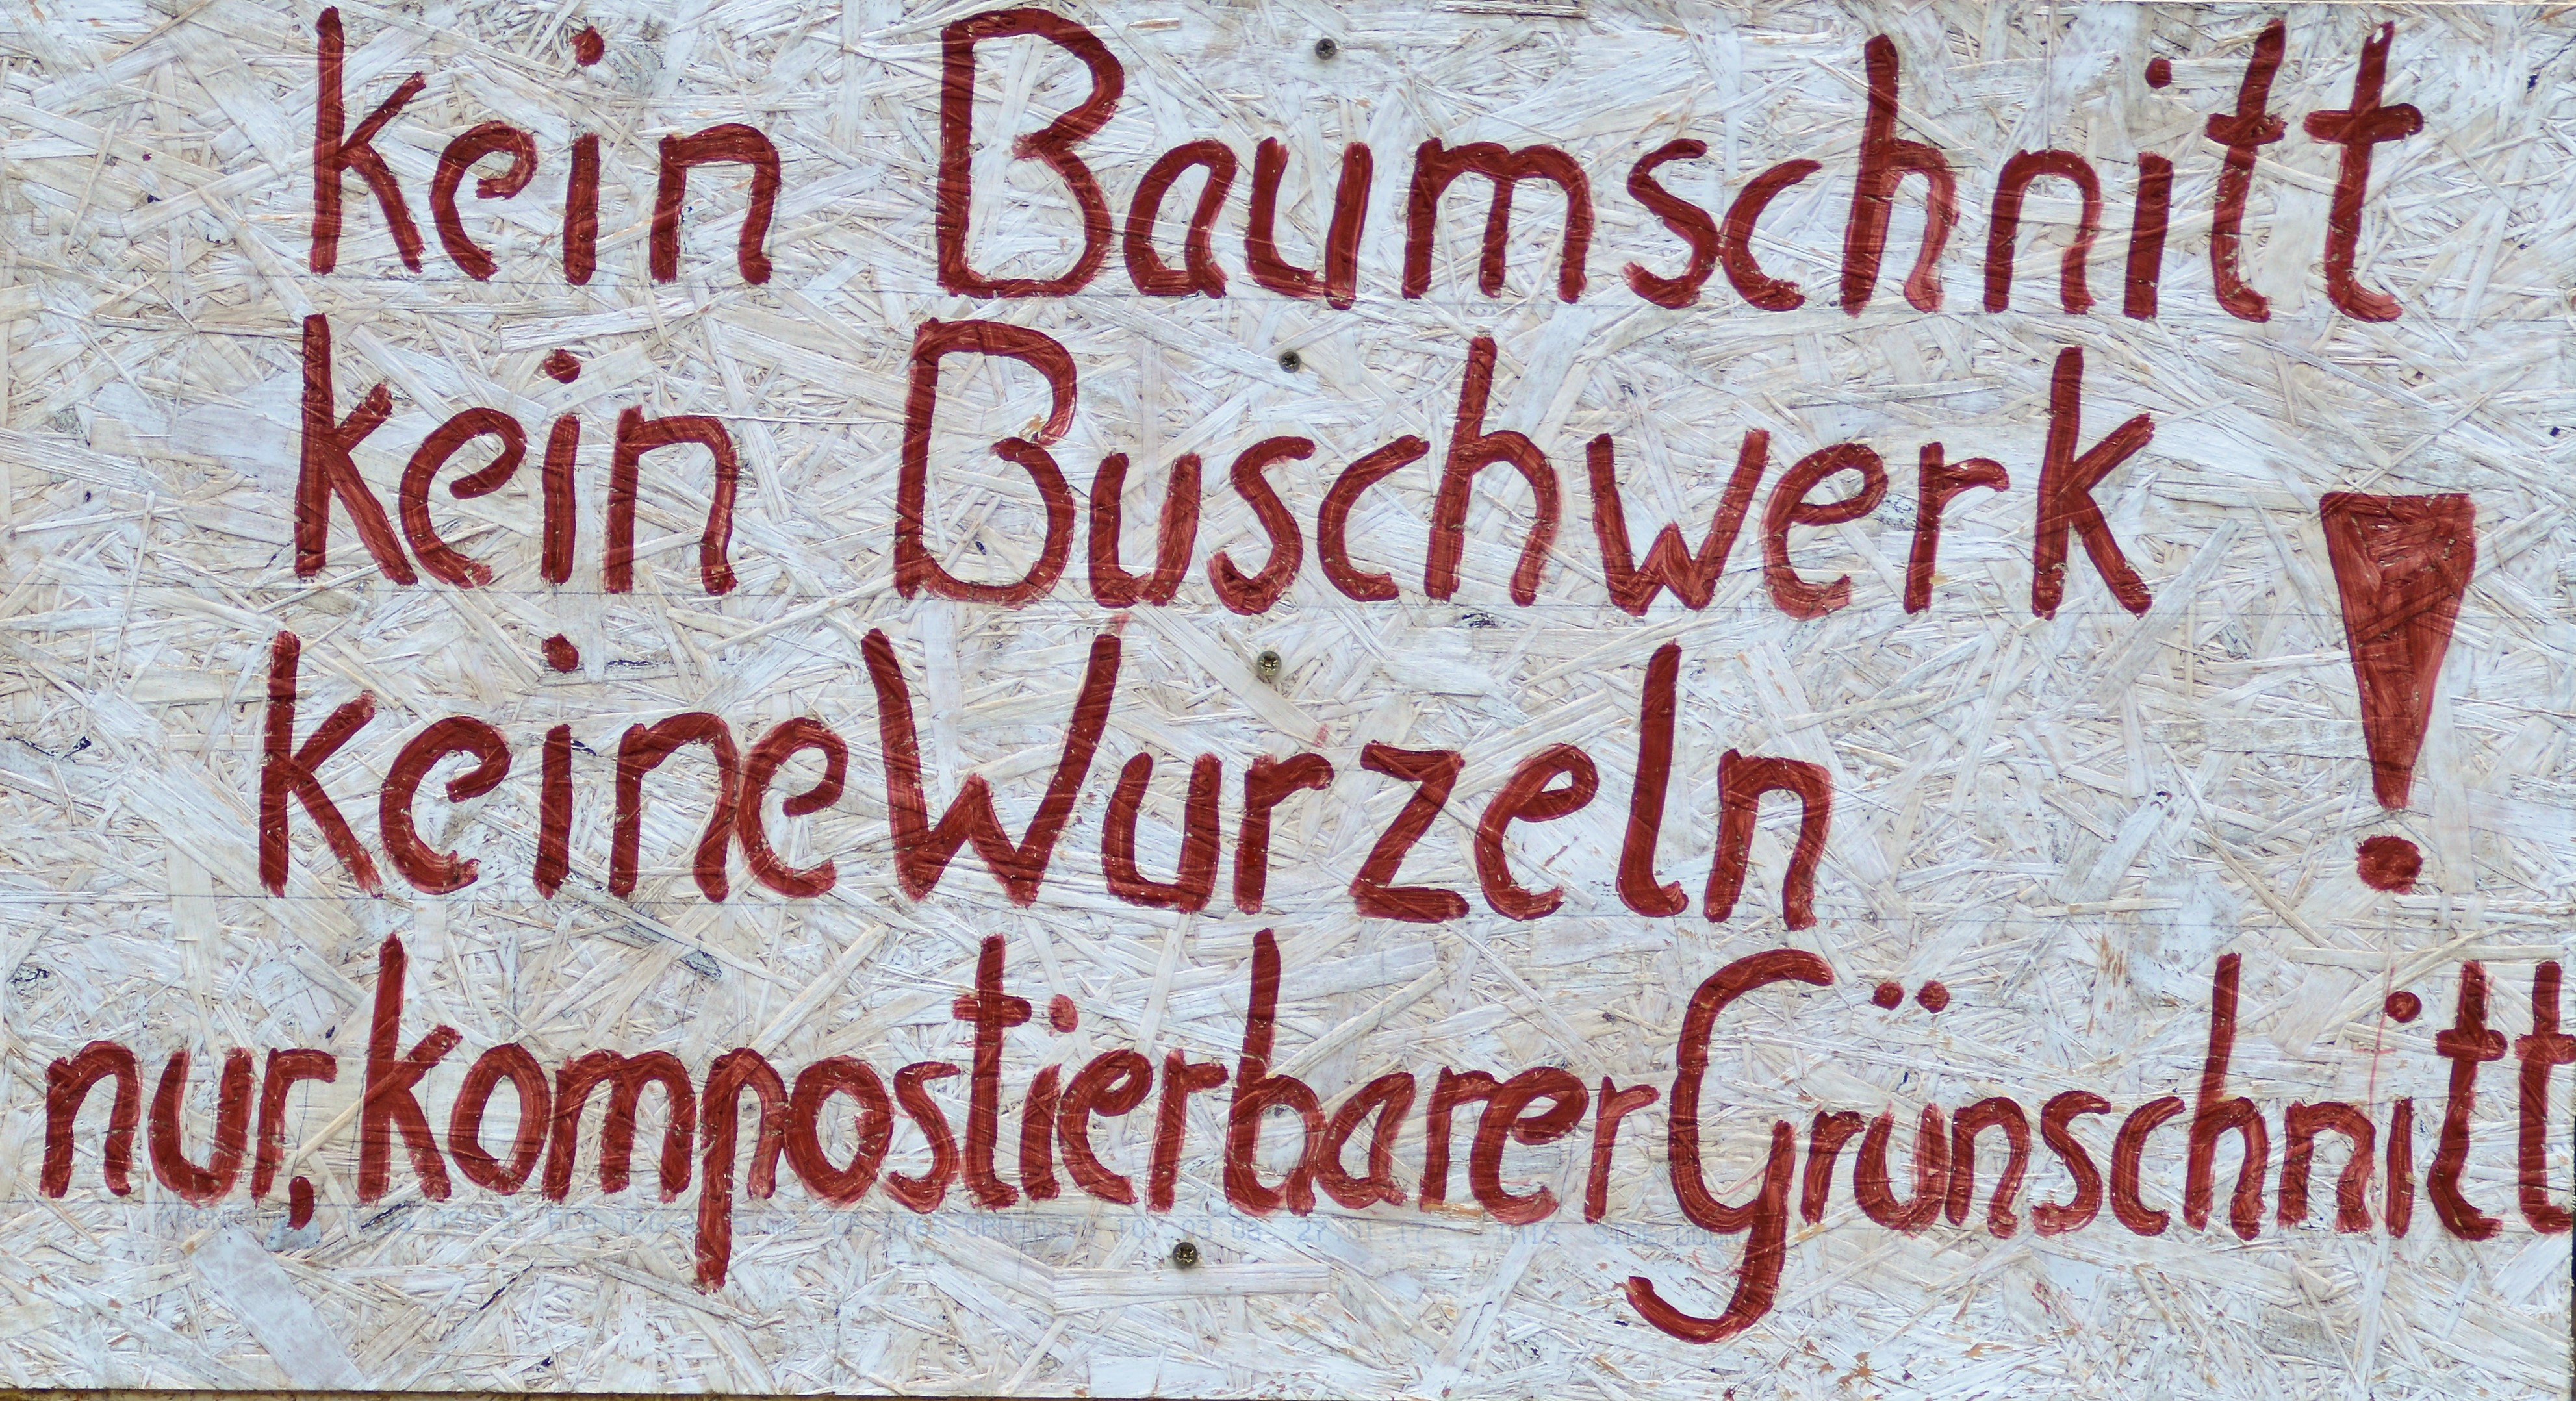 kein Baumschnitt
kein Buschwerk
keine Wurzeln !
nur, kompostierbarer Grünschnitt